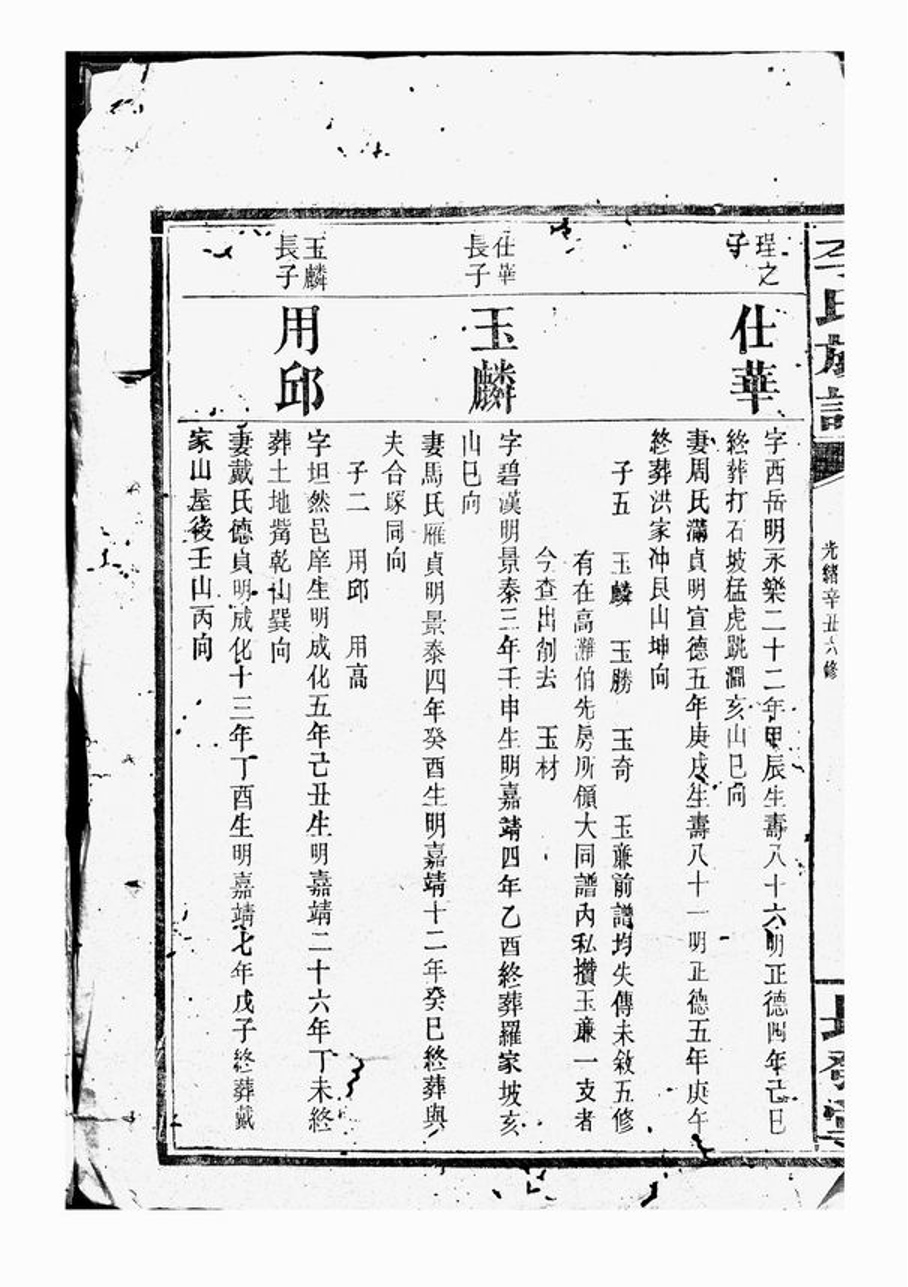 李氏族譜
光緒辛丑六修
珵之
子
仕華
字西岳明永樂二十二年甲辰生壽八十六明正德四年己巳
終葬打石坡猛虎跳澗亥山巳向
妻周氏滿貞明宣德五年庚戌生壽八十一明正德五年庚午
終葬洪家冲艮山坤向
子五 玉麟 玉勝 玉奇 玉亷前譜均失傳未敘五修
有在高灘伯先房所領大同譜內私攢玉亷一支者
今查出削去 玉材
仕華
長子
玉麟
字碧漢明景泰三年壬申生明嘉靖四年乙酉終葬羅家坡亥
山巳向
妻馬氏雁貞明景泰四年癸酉生明嘉靖十二年癸巳終葬與
夫合塚同向
子二 用邱 用高
玉麟
長子
用邱
字坦然邑庠生明成化五年己丑生明嘉靖二十六年丁未終
葬土地嘴乾山巽向
妻戴氏德貞明成化十三年丁酉生明嘉靖七年戊子終葬戴
家山屋後壬山丙向